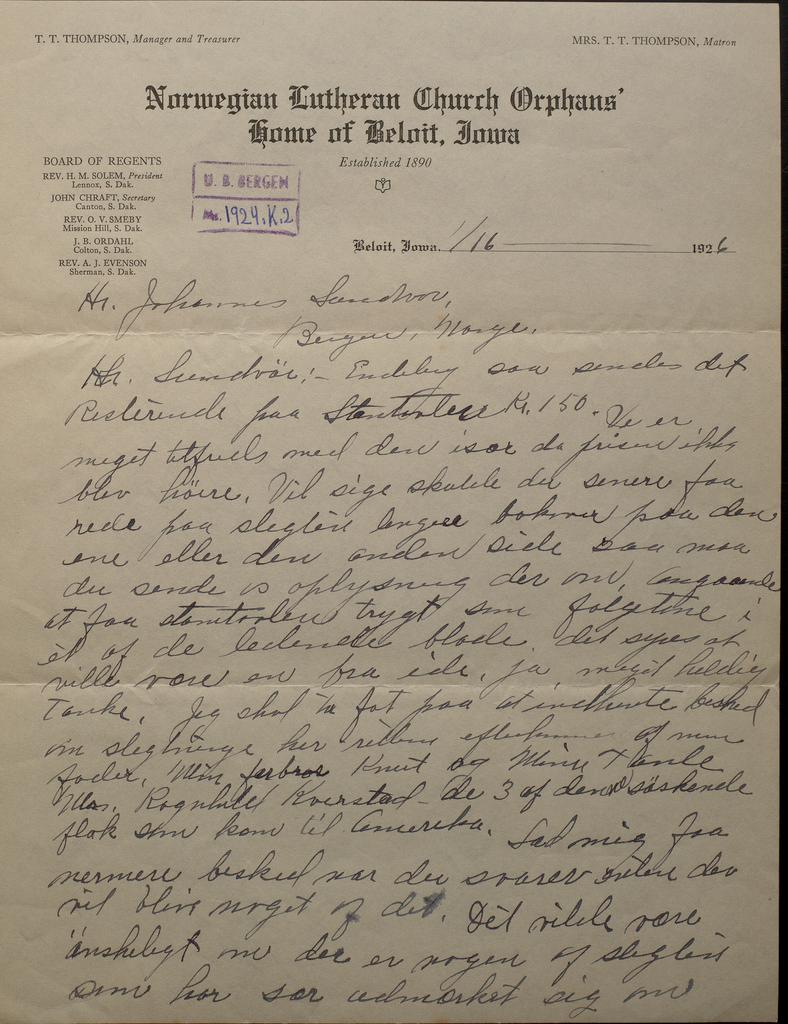 T. T. THOMPSON, Manager and Treasurer
MRS. T. T. THOMPSON, Matron
Norwegian Lutheran Church Orphans'
Home of Beloit, Iowa
Established 1890
BOARD OF REGENTS
REV. H. M. SOLEM, President
Lennox, S. Dak.
JOHN CHRAFT, Secretary
Canton, S. Dak.
REV. O. V. SMEBY
Mission Hill, S. Dak.
J. B. ORDAHL
Colton, S. Dak.
REV. A. J. EVENSON
Sherman, S. Dak.
U. B. BERGEN
Ms. 1924.K.2
Beloit, Iowa, 1/16 1926
Hr. Johannes Sundvor,
Bergen, Norge.
Hr. Sundvör:- Endelig saa sendes det
Resterende paa Stamtavlen Kr. 150. Vi er
meget tilfreds med den især da prisen ikke
blev höire. Vil sige skulde du senere faa
rede paa slegten lengere bakover paa den
ene eller den anden side saa maa
du sende os oplysning der om, angaaende
at faa stamtavlen trygt som følgetone i
et af de ledende blade. det synes at
ville være en fra ide, ja meget heldig
Tanke. Jeg skal ta fat paa at indhente besked
om slegtninge her efterkommer af min
fader, Min farbror Knut og Mine Tante
Mrs. Ragnhild Kverstad - de 3 af den söskende
flok som kom til Amerika. Lad mig faa
nermere besked nar du svarer om der
vil blive noget af det. Det vilde være
önskeligt om der er nogen af slegten
som har sær udmærket sig om